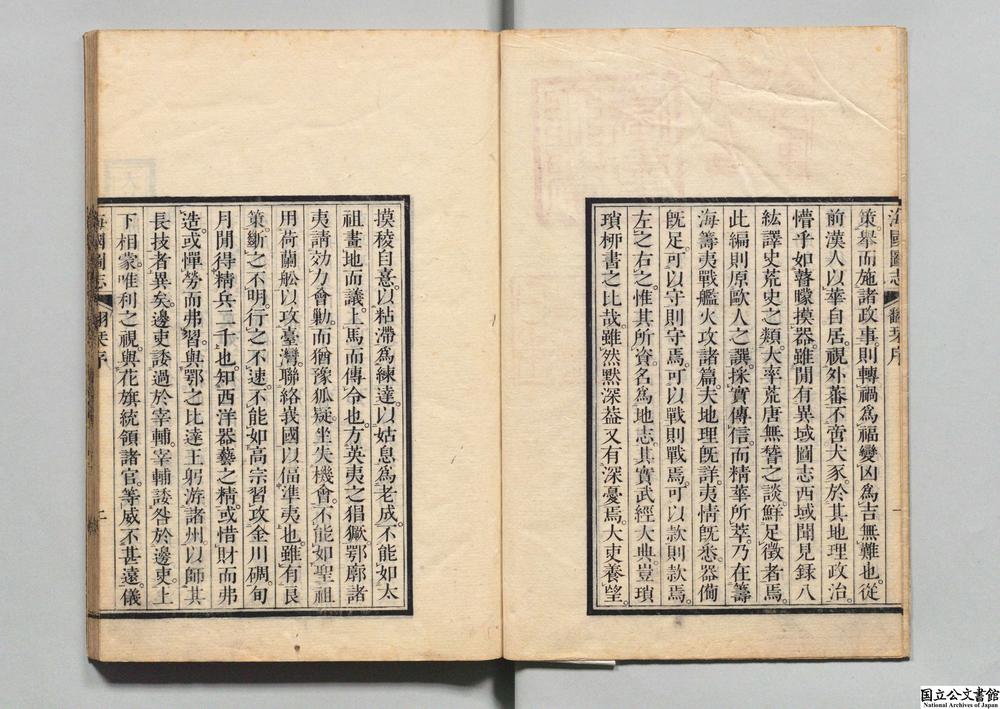 海國圖志 翻栞序 一
策。擧而施諸政事。則轉禍爲福。變凶爲吉無難也。從
前漢人以華自居。視外蕃不啻犬豕。於其地理政治。
懵乎如瞽矇摸器。雖間有異域圖志西域聞見錄八
紘譯史荒史之類。大率荒唐無稽之談。鮮足徵者焉。
此編則原歐人之譔。採實傳信。而精華所萃。乃在籌
海籌夷戰艦火攻諸篇。夫地理旣詳。夷情旣悉。器備
旣足。可以守則守焉。可以戰則戰焉。可以款則款焉。
左之右之。惟其所資。名爲地志。其實武經大典。豈瑣
瑣柳書之比哉。雖然默深葢又有深憂焉。大吏養望
摸稜自憙。以粘滯爲練達。以姑息爲老成。不能如太
祖畫地而議。上馬而傳令也。方英夷之猖獗。鄂廓諸
夷請効力會勦。而猶豫狐疑。坐失機會。不能如聖祖
用荷蘭舩以攻臺灣。聯絡我國以偪準夷也。雖有良
策。斷之不明。行之不速。不能如高宗習攻金川碉。旬
月閒得精兵二千也。知西洋器藝之精。或惜財而弗
造。或憚勞而弗習。與鄂之比達王躬游諸州。以師其
長技者異矣。邊吏諉過於宰輔。宰輔諉咎於邊吏。上
下相蒙。唯利之視。與花旗統領諸官。等威不甚遠。儀
海國圖志 翻栞序 二
国立公文書館
National Archives of Japan